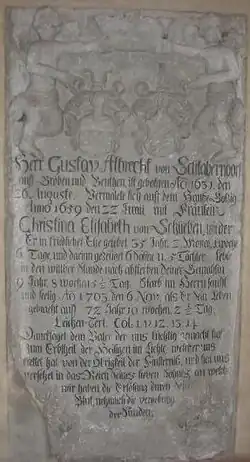 Herr Gustav Albrecht von Schlabernдorf
auf Gröben und Beuthen, ist gebohren Aō 1631. den
26 Auguste. Vermält sich auf dem Hause
Anno 1659 den 22 Juni mit Fräulein
Christina Elisabeth von Schlieben, wider
Er in friedlicher Ehe gelebt 35 Jahr, 2
6 Tage und darinn gezeuget 6 Söhne u. 5 Töchter. lebe
in den witber stande nach absterben deßen Gemahlin
9 Jahr 8 wochen 3 ½ Tag. Starb im Herrn sanfft
und seelig Aō 1703 den 6 Nov. als Er sein Leben
gebracht auff 72 Jahr 10 wochen 2 ½ Tag.
Leichen-Text Col. 1 v. 12. 13. 14
Dancksaget dem Vater der uns tüchtig gemacht hat
zum Erbtheil der Heiligen im Lichte, welcher uns
errettet hat von der Obrigkeit der Finsternis, und hat uns
versetzet in das Reich seines lieben Sohnes, an welchem
wir haben die Erlösung durch sein
Blut, nehmlich die vergebung
der Sünden.